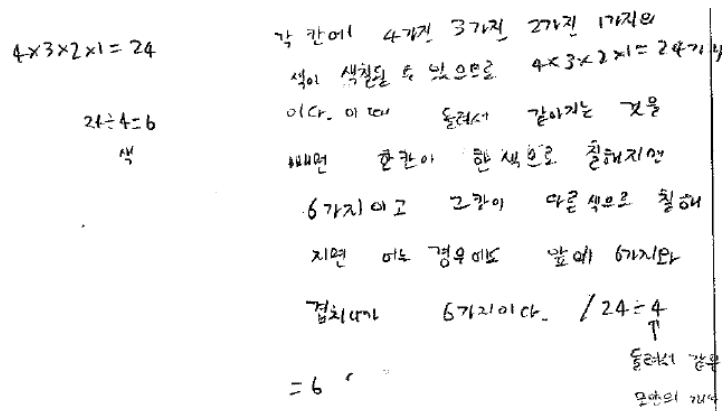 4×3×2×1=24
24÷4=6
색
각 칸에 4가지 3가지 2가지 1가지의
색이 색칠될 수 있으므로 4×3×2×1=24가지
이다. 이 때 돌려서 같아지는 것을
빼면 한칸이 한 색으로 칠해지면
6가지이고 그칸이 다른 색으로 칠해
지면 어느 경우에도 앞에 6가지와
겹치니까 6가지이다. / 24÷4
돌려서 같은
모양의 개수
=6